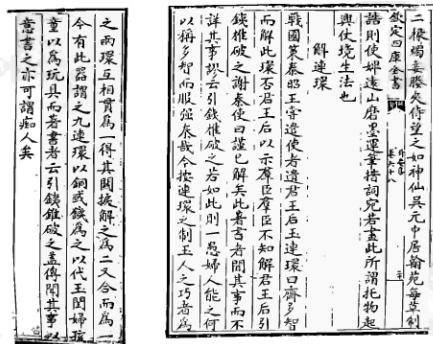 二椽燭妾媵夾侍望之如神仙吳元中居翰苑每草制
欽定四庫全書
升菴集
卷六十八
誥則使婢遠山磨墨運筆措詞宛若畫此所謂托物起
興仗境生法也
解連環
戰國策秦昭王嘗遣使者遺君王后玉連環曰齊多智
而解此環否君王后以示羣臣羣臣不知解君王后引
鐵椎破之謝秦使曰謹已解矣此著書者聞其事而不
詳其事謬云引鐵椎破之若如此則一愚婦人能之何
以稱多智而服强秦哉今按連環之制玉人之巧者為
之兩環互相貫為一得其關捩解之為二又合而為一
今有此器謂之九連環以銅或鐵為之以代玉閨婦孩
童以為玩具而著書者云引鐵錐破之蓋傳聞其事以
意書之亦可謂痴人矣